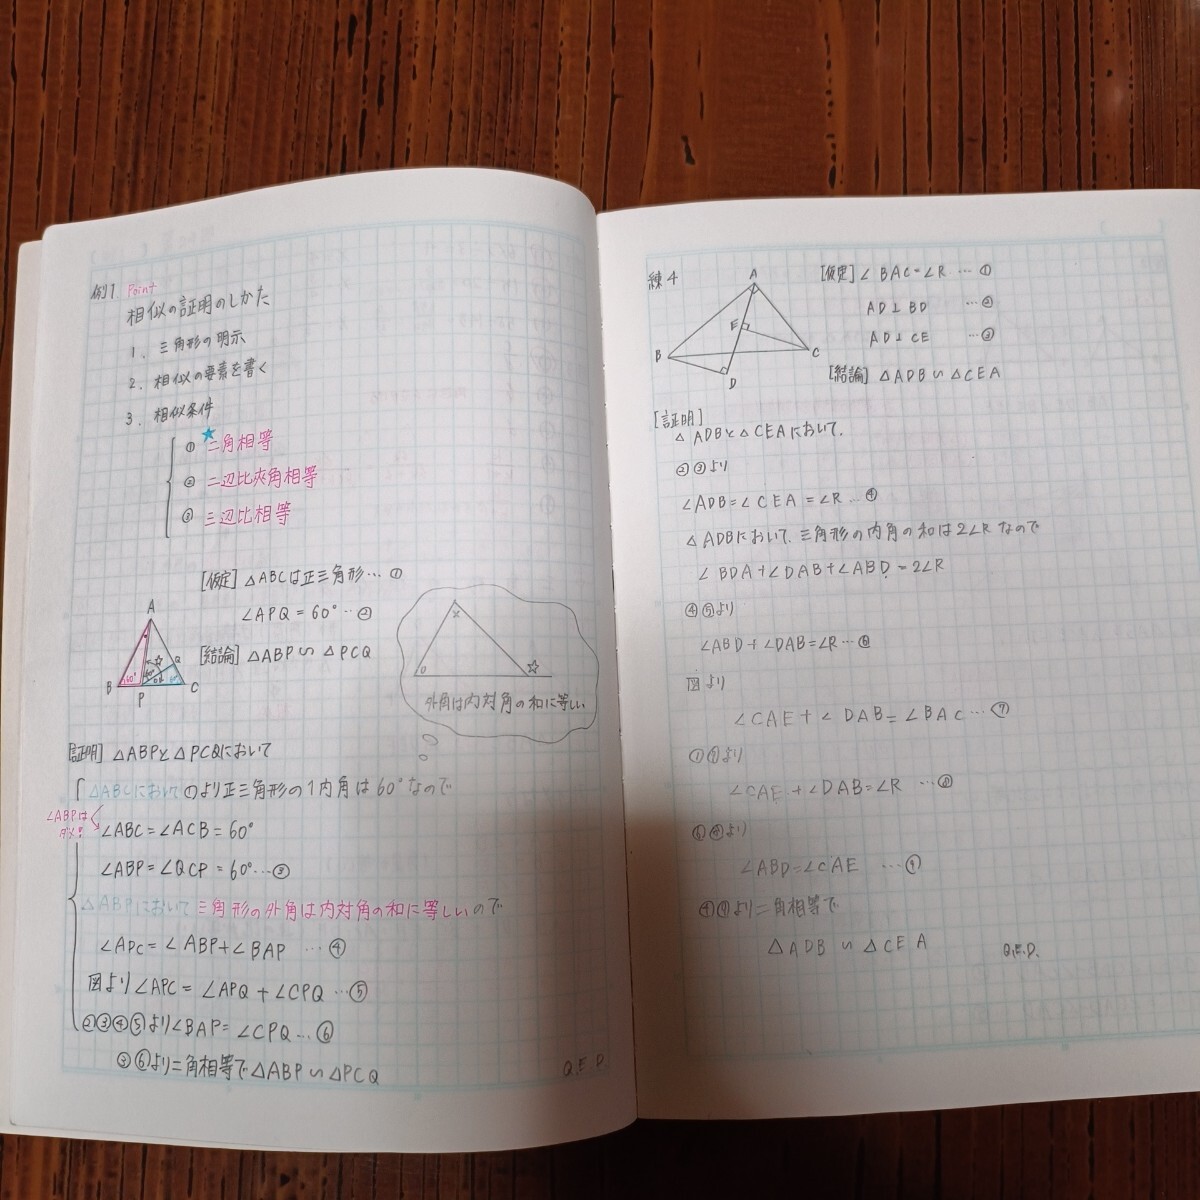 例1 Point
相似の証明のしかた
1、三角形の明示
2、相似の要素を書く
3、相似条件
① ★二角相等
② 二辺比夾角相等
③ 三辺比相等
[仮定] △ABCは正三角形…①
∠APQ=60°…②
[結論] △ABP∽△PCQ
A
B
P
C
Q
60°
60°
☆
×
○
☆
外角は内対角の和に等しい
[証明] △ABPと△PCQにおいて
△ABCにおいて①より正三角形の1内角は60°なので
∠ABPは
ダメ!
∠ABC=∠ACB=60°
∠ABP=∠QCP=60°…③
△ABPにおいて三角形の外角は内対角の和に等しいので
∠APC=∠ABP+∠BAP …④
図より∠APC=∠APQ+∠CPQ…⑤
②③④⑤より∠BAP=∠CPQ…⑥
③⑥より二角相等で△ABP∽△PCQ
Q.E.D.
練4
A
B
C
D
E
[仮定] ∠BAC=∠R …①
AD⊥BD …②
AD⊥CE …③
[結論] △ADB∽△CEA
[証明]
△ADBと△CEAにおいて、
②③より
∠ADB=∠CEA=∠R…④
△ADBにおいて、三角形の内角の和は2∠Rなので
∠BDA+∠DAB+∠ABD=2∠R
④⑤より
∠ABD+∠DAB=∠R…⑥
図より
∠CAE+∠DAB=∠BAC…⑦
①⑦より
∠CAE+∠DAB=∠R …⑧
⑥⑧より
∠ABD=∠CAE …⑨
④⑨より二角相等で
△ADB∽△CEA
Q.E.D.